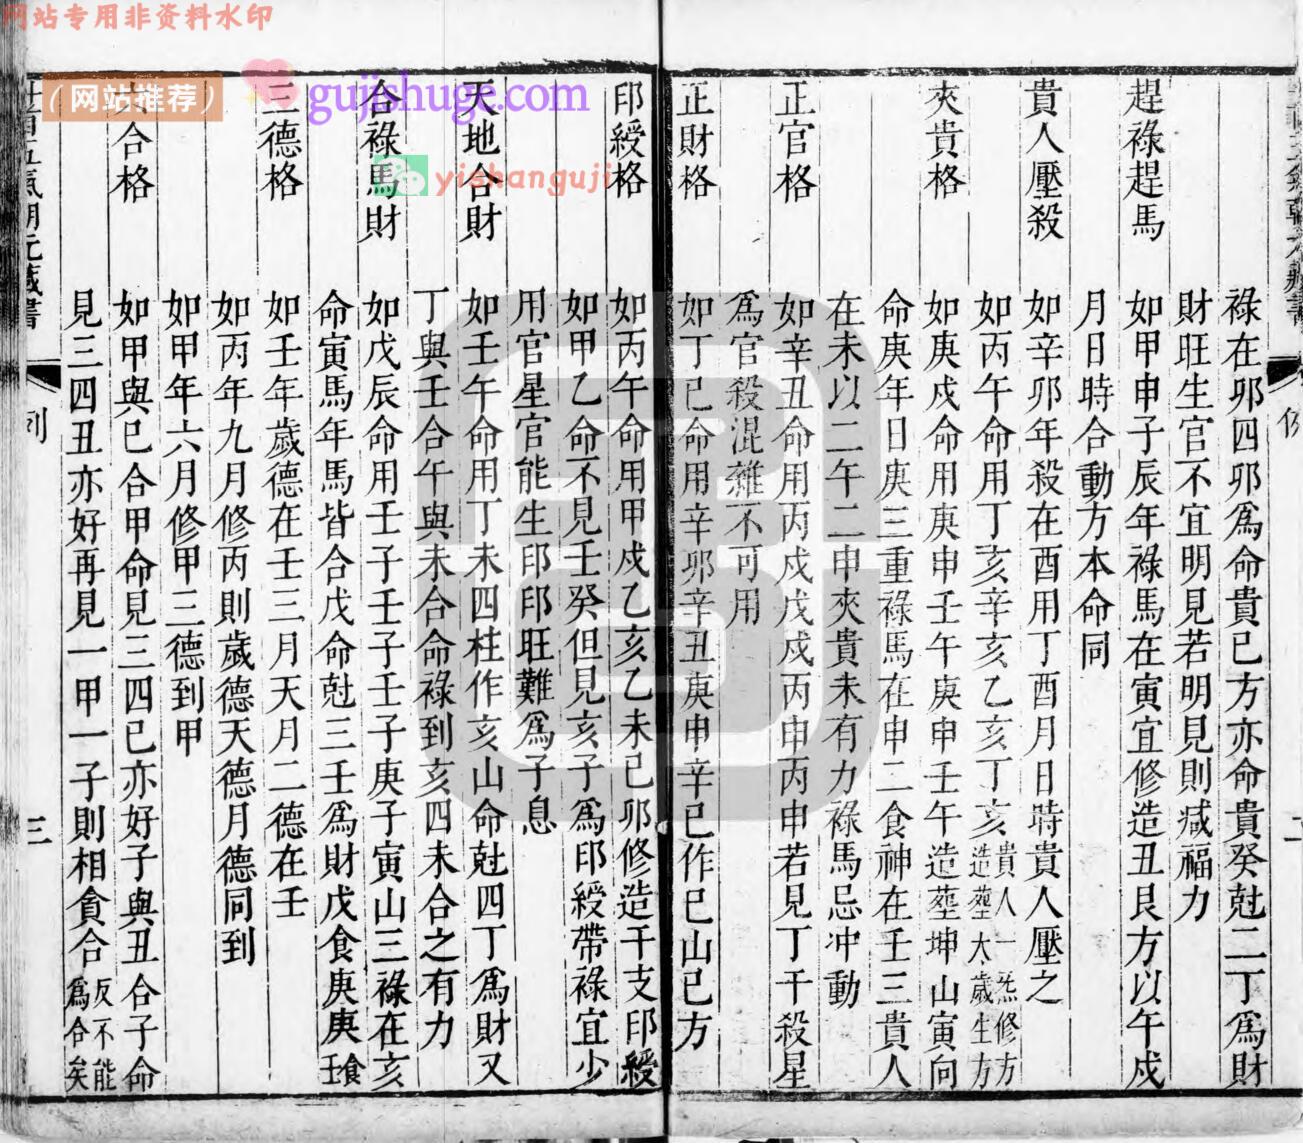 网站专用非资料水印
（网站推荐）
gujishuge.com
yishanguji
祿在卯四卯爲命貴巳方亦命貴癸尅二丁爲財
財旺生官不宜明見若明見則減福力
趕祿趕馬 如甲申子辰年祿馬在寅宜修造丑艮方以午戌
月日時合動方本命同
貴人壓殺 如辛卯年殺在酉用丁酉月日時貴人壓之
如丙午命用丁亥辛亥乙亥丁亥貴人一炁修方造塟太歲生方
夾貴格 如庚戌命用庚申壬午庚申壬午造塟坤山寅向
命庚年日庚三重祿馬在申二食神在壬三貴人
在未以二午二申夾貴未有力祿馬忌冲動
正官格 如辛丑命用丙戌戊戌丙申丙申若見丁干殺星
爲官殺混雜不可用
正財格 如丁巳命用辛卯辛丑庚申辛巳作巳山巳方
印綬格 如丙午命用甲戌乙亥乙未己卯修造干支印綬
如甲乙命不見壬癸但見亥子爲印綬帶祿宜少
用官星官能生印印旺難爲子息
天地合財 如壬午命用丁未四柱作亥山命尅四丁爲財又
丁與壬合午與未合命祿到亥四未合之有力
合祿馬財 如戊辰命用壬子壬子壬子庚子寅山三祿在亥
命寅馬年馬皆合戊命尅三壬爲財戊食庚庚食壬
三德格 如壬年歲德在壬三月天月二德在壬
如丙年九月修丙則歲德天德月德同到
如甲年六月修甲三德到甲
六合格 如甲與己合甲命見三四己亦好子與丑合子命
見三四丑亦好再見一甲一子則相貪合反不能爲合矣
列 三